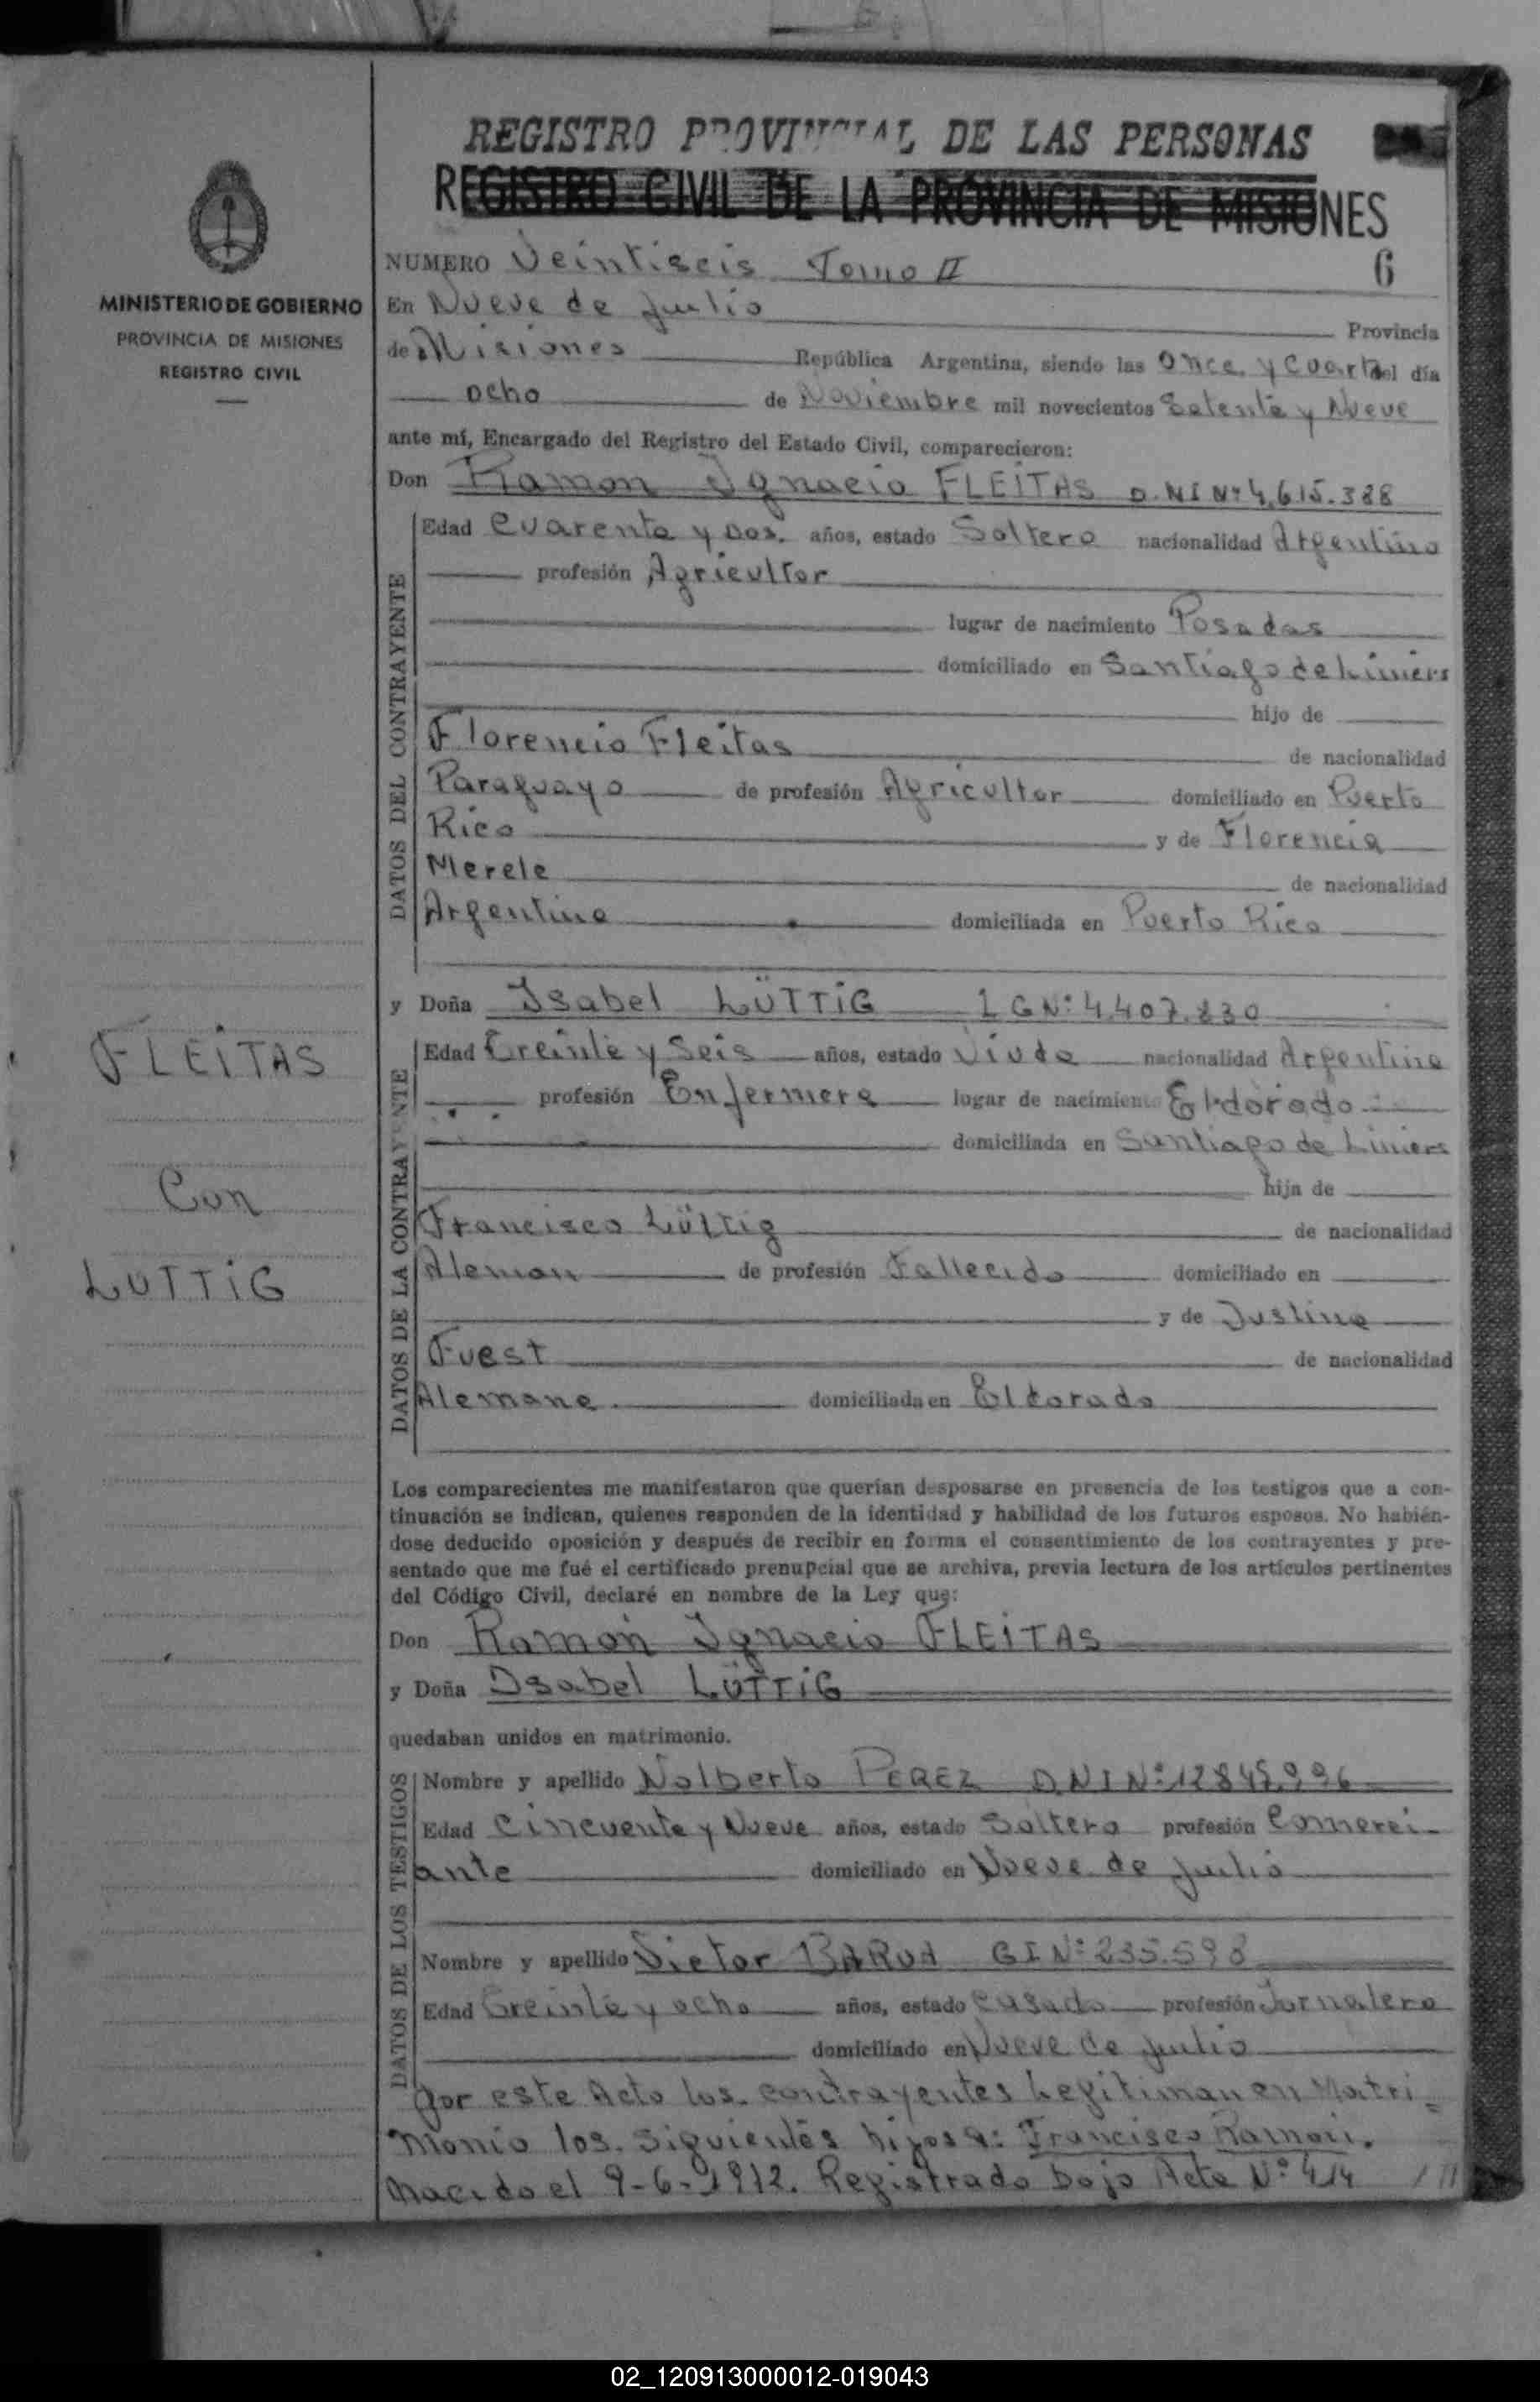 REGISTRO PROVINCIAL DE LAS PERSONAS
REGISTRO CIVIL DE LA PROVINCIA DE MISIONES
MINISTERIO DE GOBIERNO
PROVINCIA DE MISIONES
REGISTRO CIVIL
NUMERO Veintiseis Tomo II 6
En Nueve de Julio Provincia
de Misiones República Argentina, siendo las Once y Cuarto del día
ocho de Noviembre mil novecientos Setenta y Nueve
ante mí, Encargado del Registro del Estado Civil, comparecieron:
Don Ramon Ignacio FLEITAS D.NI Nº 4.615.388
DATOS DEL CONTRAYENTE
Edad Cuarenta y Dos. años, estado Soltero nacionalidad Argentino
profesión Agricultor
lugar de nacimiento Posadas
domiciliado en Santiago de Liniers
hijo de
Florencio Fleitas de nacionalidad
Paraguayo de profesión Agricultor domiciliado en Puerto
Rico y de Florencia
Merele de nacionalidad
Argentina domiciliada en Puerto Rico
y Doña Isabel LÜTTIG LC Nº: 4.407.830
FLEITAS
Con
LUTTIG
DATOS DE LA CONTRAYENTE
Edad Treinta y Seis años, estado Viuda nacionalidad Argentina
profesión Enfermera lugar de nacimiento Eldorado
domiciliada en Santiago de Liniers
hija de
Francisco Lüttig de nacionalidad
Aleman de profesión Fallecido domiciliado en
y de Justina
Fuest de nacionalidad
Alemana domiciliada en Eldorado
Los comparecientes me manifestaron que querían desposarse en presencia de los testigos que a con-
tinuación se indican, quienes responden de la identidad y habilidad de los futuros esposos. No habién-
dose deducido oposición y después de recibir en forma el consentimiento de los contrayentes y pre-
sentado que me fué el certificado prenupcial que se archiva, previa lectura de los artículos pertinentes
del Código Civil, declaré en nombre de la Ley que:
Don Ramón Ignacio FLEITAS
y Doña Isabel LÜTTIG
quedaban unidos en matrimonio.
DATOS DE LOS TESTIGOS
Nombre y apellido Nolberto PEREZ D.N.I Nº: 12.845.996
Edad Cincuenta y Nueve años, estado Soltero profesión Comerci-
ante domiciliado en Nueve de Julio
Nombre y apellido Victor BARUA CI Nº: 235.598
Edad Treinta y ocho años, estado Casado profesión Jornalero
domiciliado en Nueve de Julio
Por este Acto los contrayentes Legitiman en Matri-
monio los siguientes hijos a: Francisco Ramon.
Nacido el 9-6-1972. Registrado bajo Acta Nº 414 ///
02_120913000012-019043